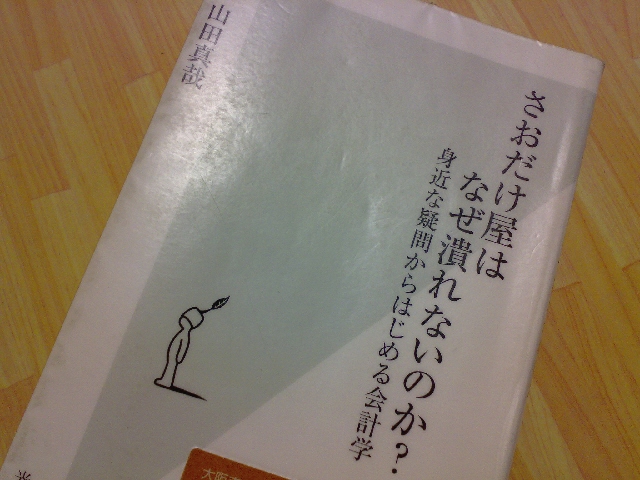 さおだけ屋は
なぜ潰れないのか?
身近な疑問からはじめる会計学
山田真哉
光
大阪